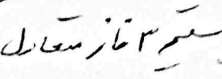 سیستم ۳ فاز متعادل